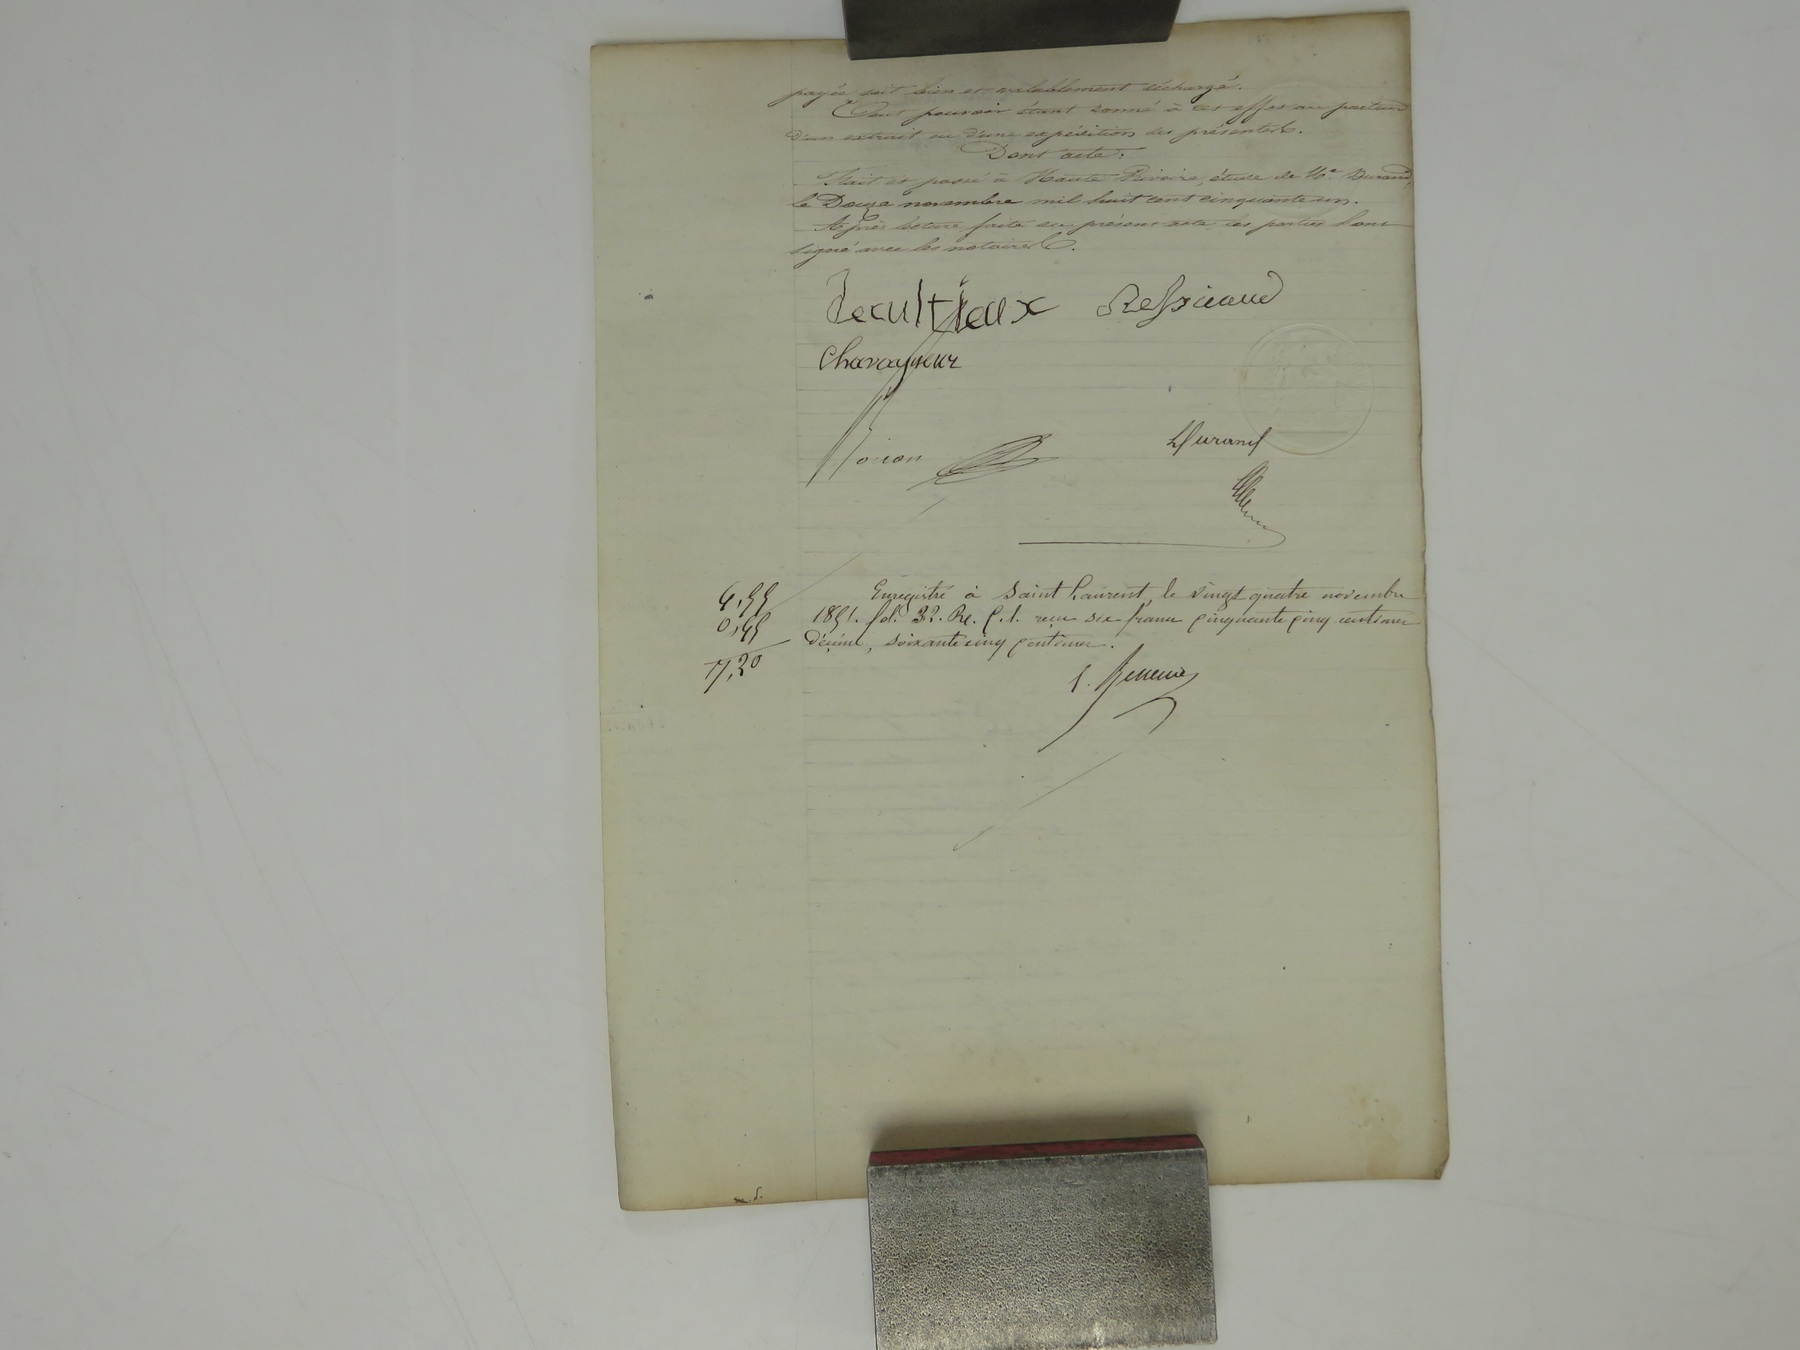 payée soit bien et valablement déchargé.
Tout pouvoir étant donné à cet effet au porteur
d'un extrait ou d'une expédition des présentes.
Dont acte:
Fait et passé à Haute Rivoire, étude de Me Durand,
le Douze novembre mil huit cent cinquante un.
Après lecture faite du présent acte, les parties l'ont
signé avec les notaires.
Decultieux Ressicaud
Charayneur
Durand
6,55
0,65
7,20
Enregistré à Saint Laurent, le vingt quatre novembre
1851. fol. 32. Ro. C. 1. reçu six francs cinquante cinq centimes
décime, soixante cinq centimes.